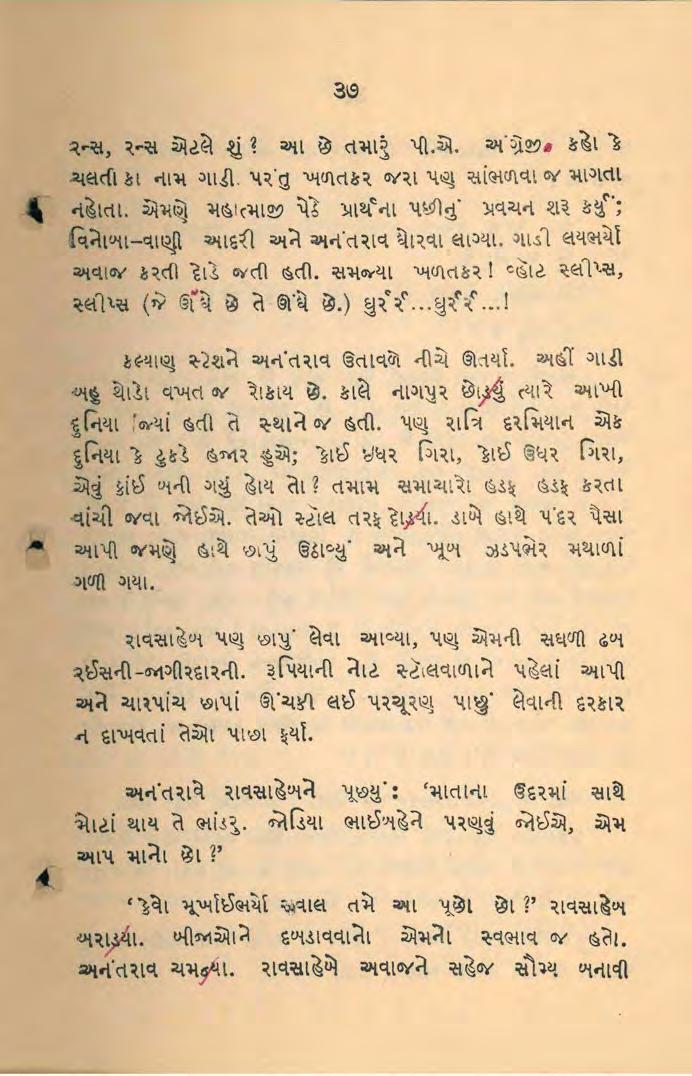 ૩૭
રન્સ, રન્સ એટલે શું ? આ છે તમારું પી.એ. અંગ્રેજી. કહો કે
ચલતી કા નામ ગાડી. પરંતુ ખળતકર જરા પણ સાંભળવા જ માગતા
નહોતા. એમણે મહાત્માજી પેઠે પ્રાર્થના પછીનું પ્રવચન શરૂ કર્યું;
વિનોબા-વાણી આદરી અને અનંતરાવ ઘોરવા લાગ્યા. ગાડી લયભર્યો
અવાજ કરતી દોડે જતી હતી. સમજ્યા ખળતકર ! વ્હૉટ સ્લીપ્સ,
સ્લીપ્સ (જે ઊંઘે છે તે ઊંઘે છે.) ઘુર્ર્ર્...ઘુર્ર્ર્...!
કલ્યાણ સ્ટેશને અનંતરાવ ઉતાવળે નીચે ઊતર્યા. અહીં ગાડી
બહુ થોડો વખત જ રોકાય છે. કાલે નાગપુર છોડ્યું ત્યારે આખી
દુનિયા જ્યાં હતી તે સ્થાને જ હતી. પણ રાત્રિ દરમિયાન એક
દુનિયા કે ટુકડે હજાર હુએ; કોઈ ઇધર ગિરા, કોઈ ઉધર ગિરા,
એવું કાંઈ બની ગયું હોય તો ? તમામ સમાચારો હડફ હડફ કરતા
વાંચી જવા જોઈએ. તેઓ સ્ટૉલ તરફ દોડ્યા. ડાબે હાથે પંદર પૈસા
આપી જમણે હાથે છાપું ઉઠાવ્યું અને ખૂબ ઝડપભેર મથાળાં
ગળી ગયા.
રાવસાહેબ પણ છાપું લેવા આવ્યા, પણ એમની સઘળી ઢબ
રઈસની-જાગીરદારની. રૂપિયાની નોટ સ્ટૉલવાળાને પહેલાં આપી
અને ચારપાંચ છાપાં ઊંચકી લઈ પરચૂરણ પાછું લેવાની દરકાર
ન દાખવતાં તેઓ પાછા ફર્યા.
અનંતરાવે રાવસાહેબને પૂછયું : ‘માતાના ઉદરમાં સાથે
મોટાં થાય તે ભાંડરુ. જોડિયા ભાઈબહેને પરણવું જોઈએ, એમ
આપ માનો છો ?’
‘કેવો મૂર્ખાઈભર્યો સવાલ તમે આ પૂછો છો ?’ રાવસાહેબ
બરાડ્યા. બીજાઓને દબડાવવાનો એમનો સ્વભાવ જ હતો.
અનંતરાવ ચમક્યા. રાવસાહેબે અવાજને સહેજ સૌમ્ય બનાવી